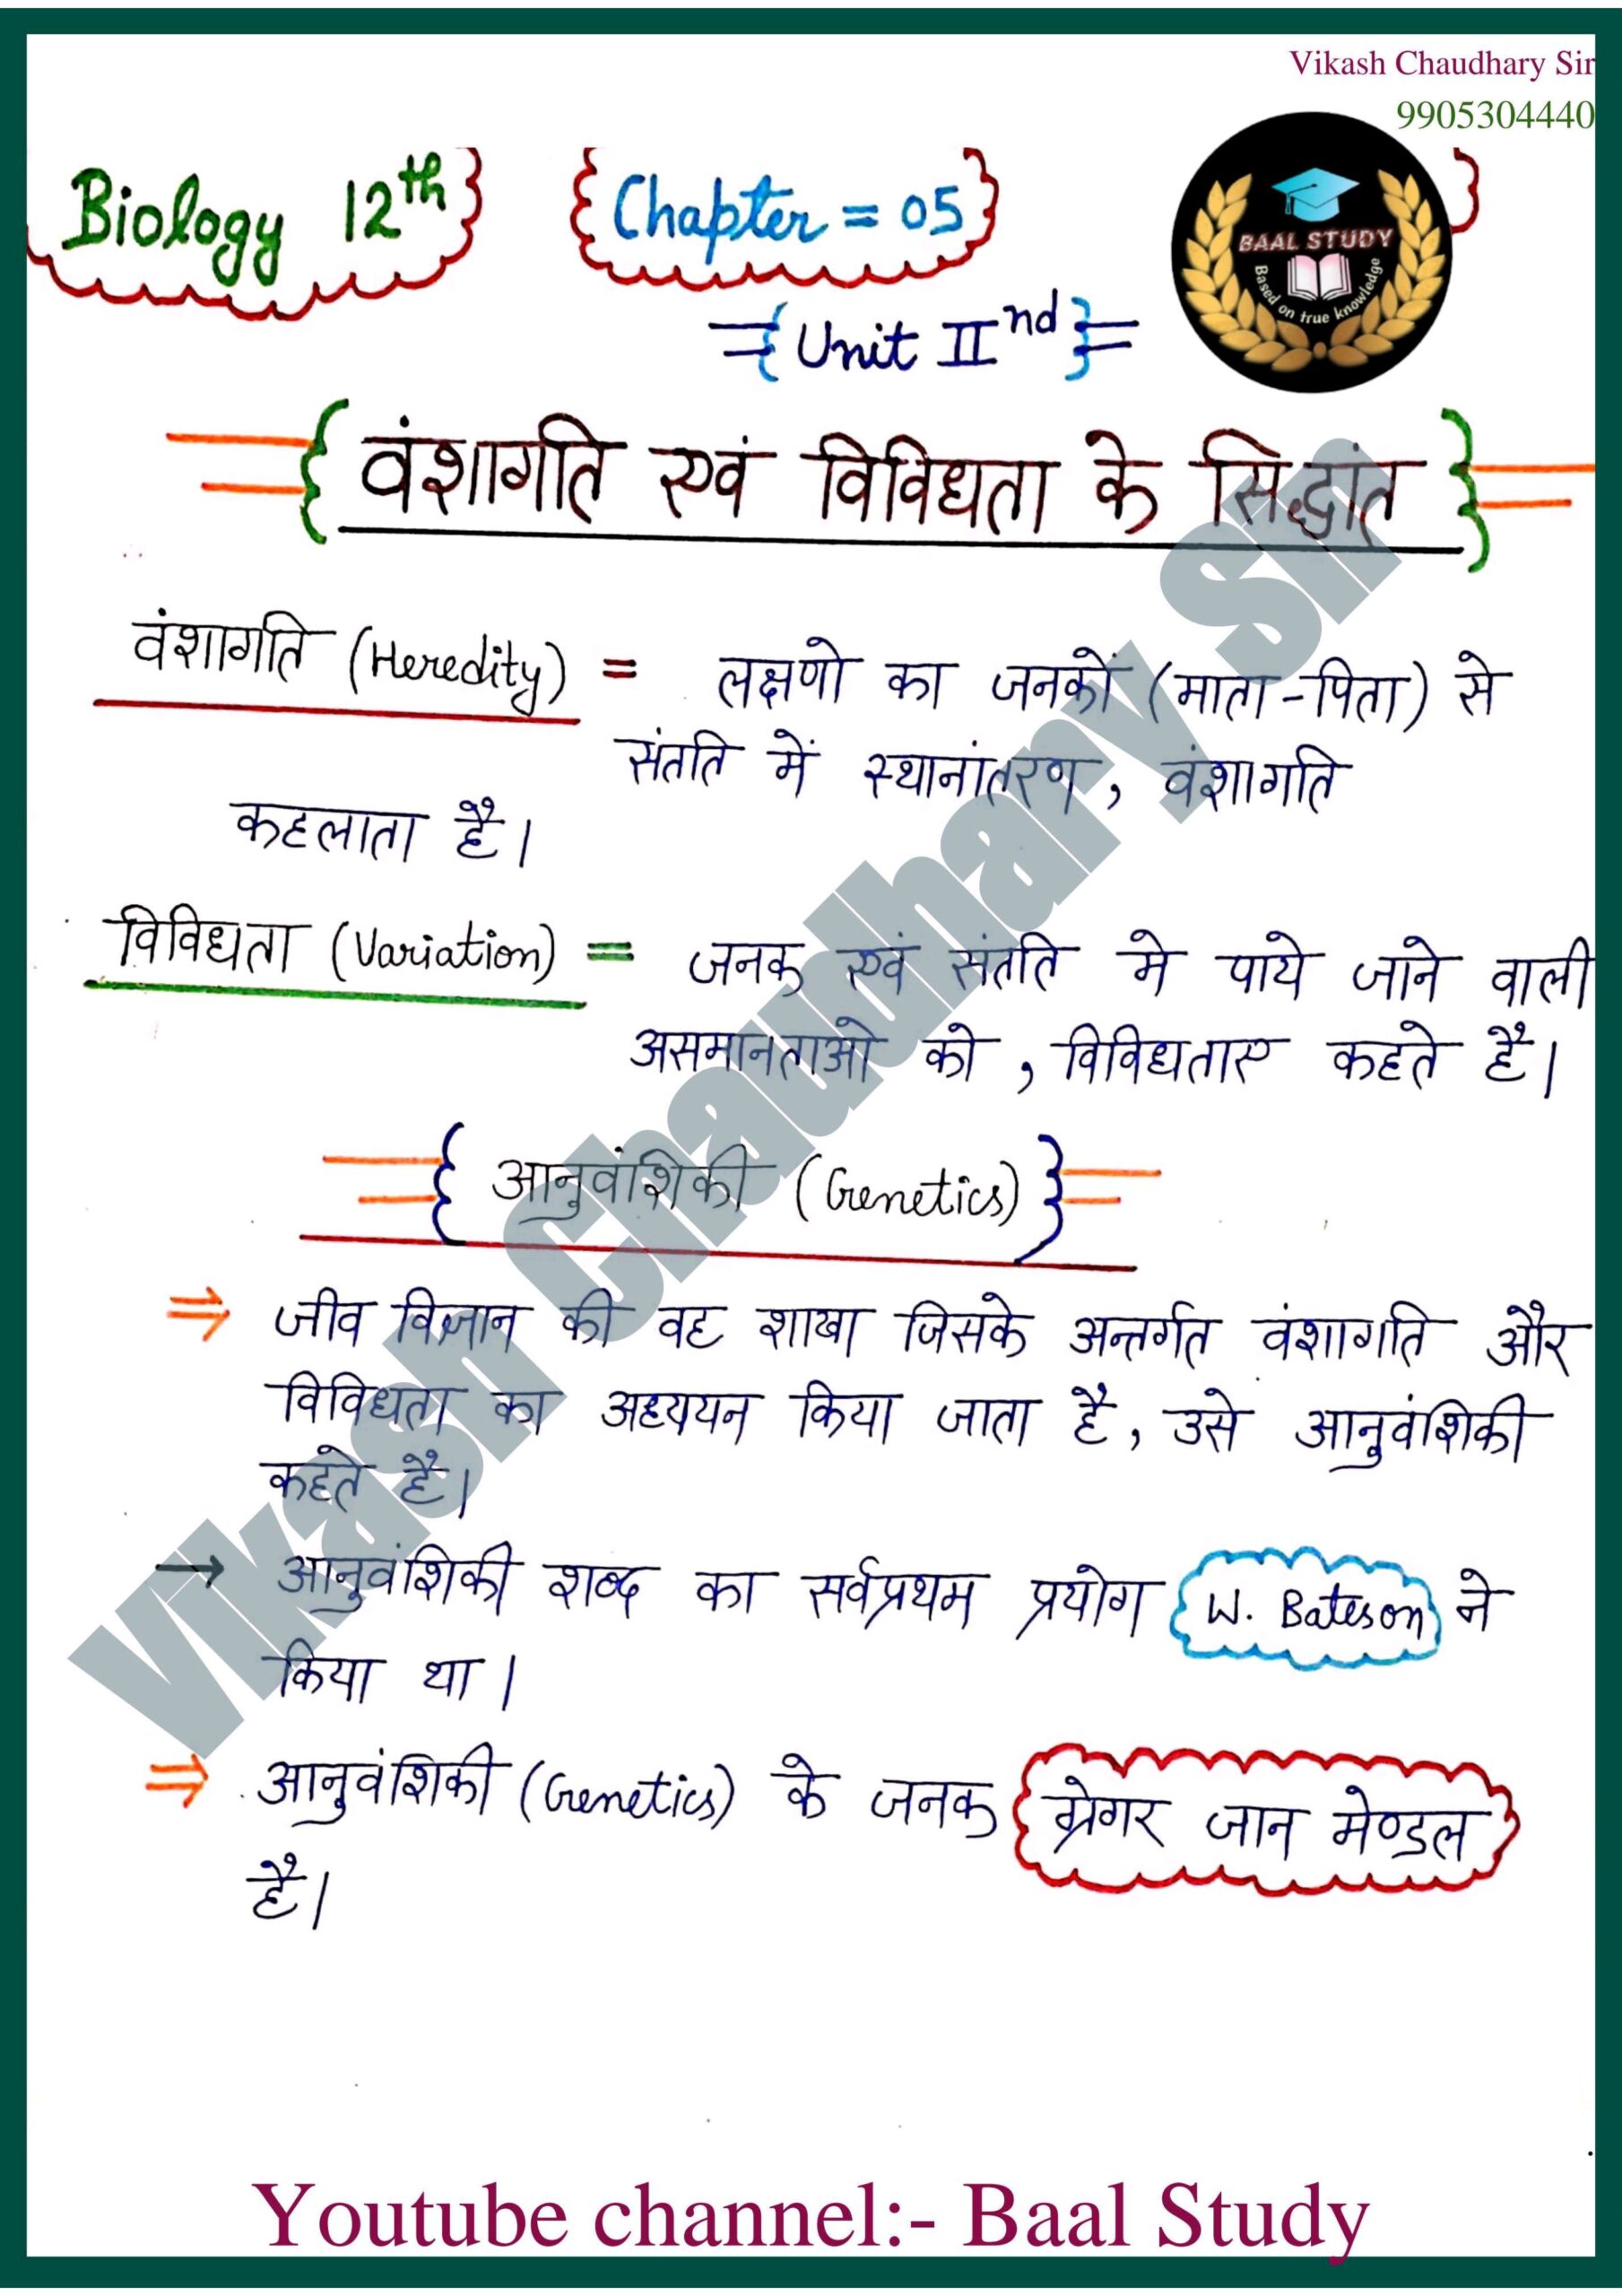 Vikash Chaudhary Sir
9905304440
Biology 12th
Chapter = 05
BAAL STUDY
Based on true knowledge
Unit IInd
वंशागति एवं विविधता के सिद्धांत
वंशागति (Heredity) = लक्षणो का जनकों (माता-पिता) से
संतति में स्थानांतरण, वंशागति
कहलाता है।
विविधता (Variation) = जनक एवं संतति मे पाये जाने वाली
असमानताओ को, विविधताए कहते है।
आनुवंशिकी (Genetics)
⇒ जीव विज्ञान की वह शाखा जिसके अन्तर्गत वंशागति और
विविधता का अध्ययन किया जाता है, उसे आनुवंशिकी
कहते है।
→ आनुवंशिकी शब्द का सर्वप्रथम प्रयोग W. Bateson ने
किया था।
⇒ आनुवंशिकी (Genetics) के जनक ग्रेगर जान मेण्डल
है।
Vikash Chaudhary Sir
Youtube channel:- Baal Study